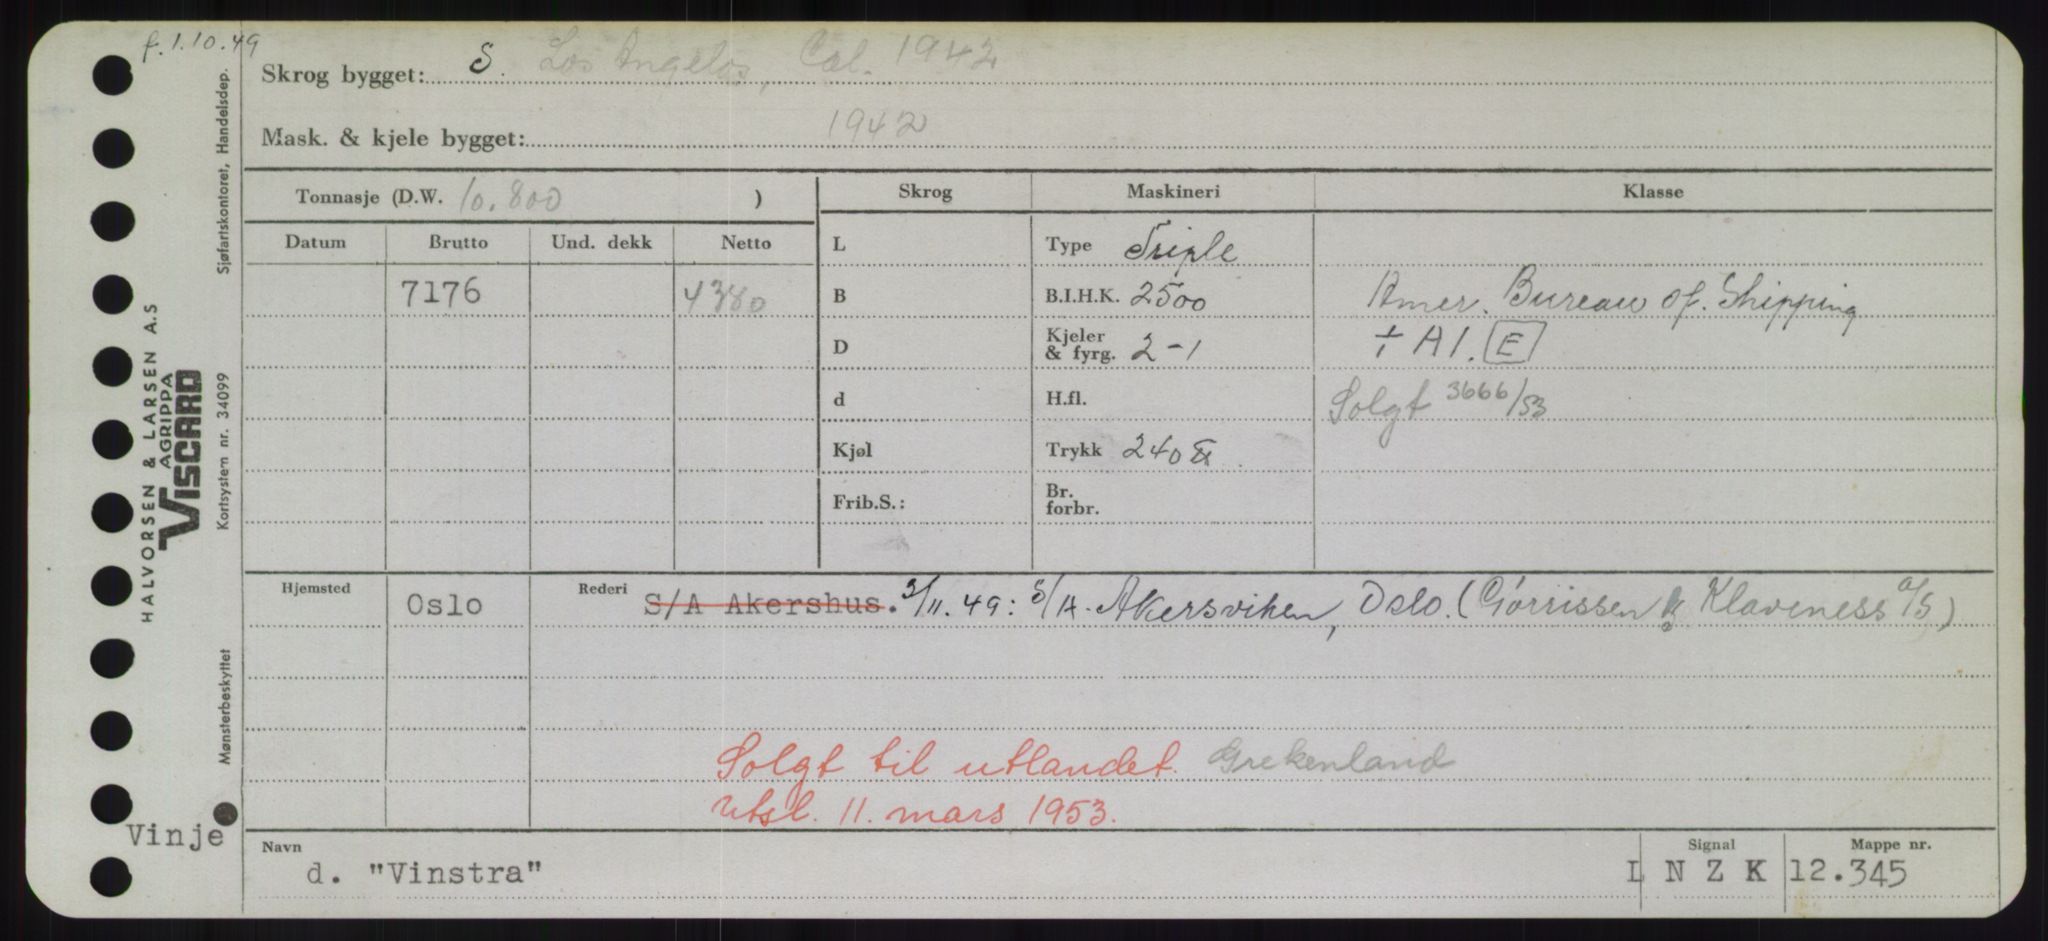 f. 1.10.49
Skrog bygget: S. Los Angelos, Cal. 1942
Mask. & kjele bygget: 1942
Tonnasje (D.W. 10.800 )
Skrog Maskineri Klasse
Datum Brutto Und. dekk Netto
7176 4380
L
B
D
d
Kjøl
Frib.S.:
Type Triple
B.I.H.K. 2500
Kjeler & fyrg. 2-1
H.fl.
Trykk 240 ℔
Br. forbr.
Amer. Bureau of. Shipping
+ A1. E
Solgt 3666/53
Hjemsted Oslo
Rederi S/A Akershus. 3/11.49: S/A. Akersviken, Oslo. (Gørrissen & Klaveness A/S)
Solgt til utlandet. Grekenland
Utsl. 11. mars 1953.
Vinje
Navn d. "Vinstra"
Signal L N Z K
Mappe nr. 12.345
HALVORSEN & LARSEN A.S
AGRIPPA
VISCARD
Mønsterbeskyttet Kortsystem nr. 34099 Sjøfartskontoret, Handelsdep.